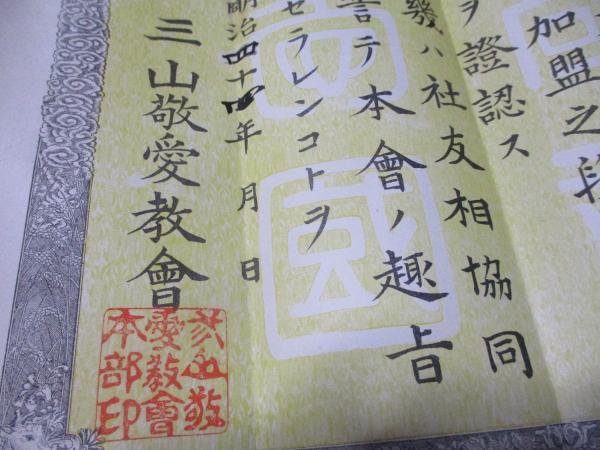 加盟之段
ヲ證認ス
幾ハ社友相協同
テ本會ノ趣旨
セラレンコトヲ
明治四十四年 月 日
三山敬愛教會
三山敬
愛教會
本部印
國